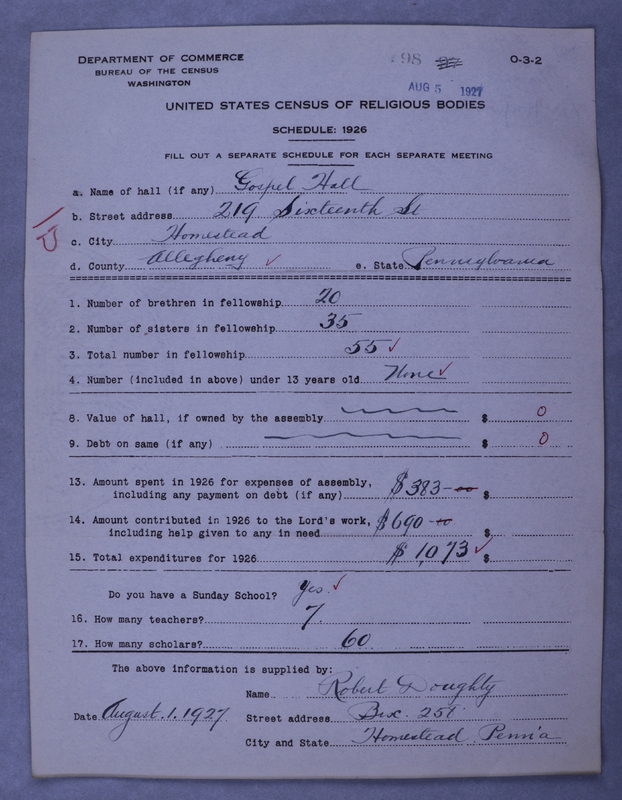 DEPARTMENT OF COMMERCE
BUREAU OF THE CENSUS
WASHINGTON
98
O-3-2
AUG 5 1927
UNITED STATES CENSUS OF RELIGIOUS BODIES
SCHEDULE: 1926
FILL OUT A SEPARATE SCHEDULE FOR EACH SEPARATE MEETING
a. Name of hall (if any) Gospel Hall
b. Street address 219 Sixteenth St
c. City Homestead
d. County Allegheny e. State Pennsylvania
1. Number of brethren in fellowship 20
2. Number of sisters in fellowship 35
3. Total number in fellowship 55
4. Number (included in above) under 13 years old None
8. Value of hall, if owned by the assembly $ 0
9. Debt on same (if any) $ 0
13. Amount spent in 1926 for expenses of assembly,
including any payment on debt (if any) $383- $
14. Amount contributed in 1926 to the Lord's work,
including help given to any in need $690- $
15. Total expenditures for 1926 $1,073 $
Do you have a Sunday School? Yes.
16. How many teachers? 7.
17. How many scholars? 60
The above information is supplied by:
Name Robert Doughty
Date August. 1. 1927. Street address Box. 251
City and State Homestead Penn'a